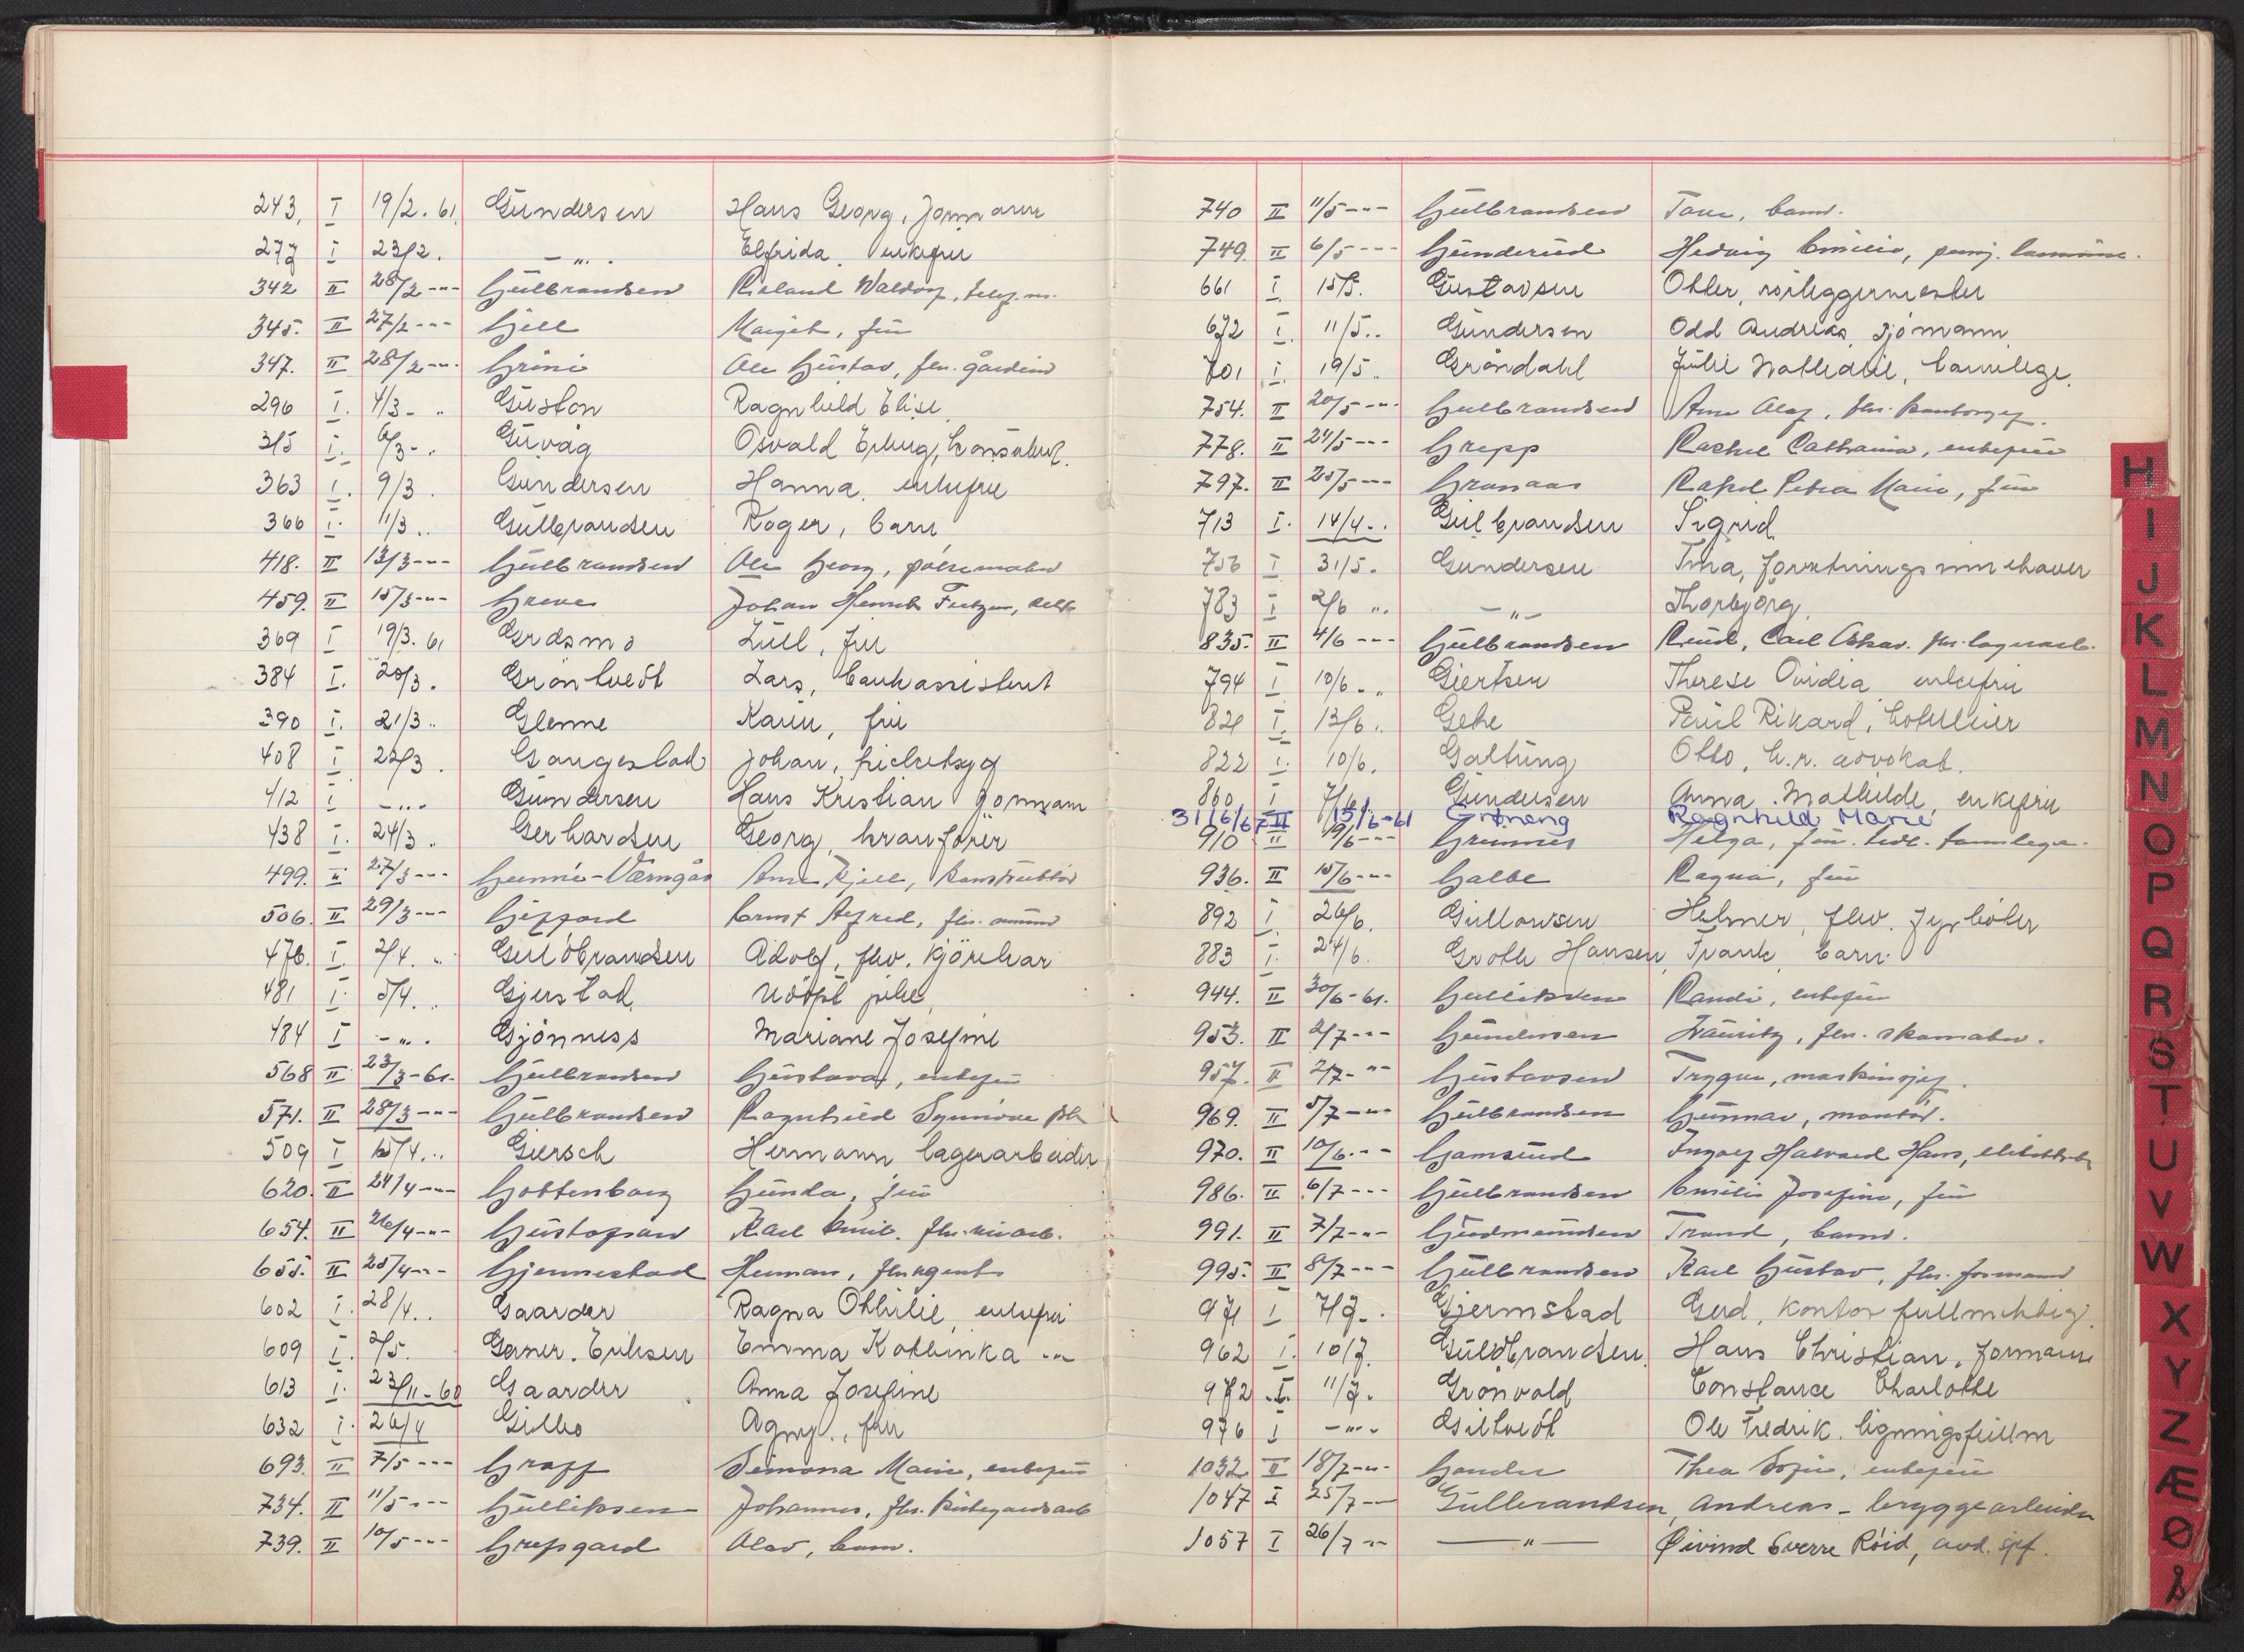 243, I 19/2. 61 Gundersen Hans Georg, formann
277 I 23/2. - " . Elfrida. enkefru
342 II 28/2 --- Gulbrandsen Roland Waldorf,
345. II 27/2 --- Gjell Margit, fru
347. II 28/2 --- Grini Ole Gustav, fhv. gårdeier
296 I. 4/3 - " Guston Ragnhild Elise
315 I. 6/3 - " Guvåg Osvald Erling, konsulent.
363 I. 9/3 . Gundersen Hanna. enkefru
366 I. 11/3 .. Gulbrandsen Roger, barn
418. II 13/3 --- Gulbrandsen Ole Georg, pølsemaker
459. II 15/3 --- Greve Johan Henrik
369 I 19/3. 61 Grdsmo Lull, fru
384 I. 20/3. Grøntvedt Lars, bankassistent
390 I. 21/3 .. Glenne Karin, fru
408 I 22/3 . Gangestad Johan,
412 I - " - Gundersen Hans Kristian formann
438 I. 24/3 .. Gerhardsen Georg, kranfører
499. II 27/3 --- Arne Kjell, konstruktør
506. II 29/3 --- Gifford Ernst Alfred, fhv.
476. I. 2/4. " Guldbrandsen Adolf, fhv. kjørekar
481 I. 5/4. . Gjerstad Udøpt pike
484 I - " . Gjönness Mariane Josefine
568 II 23/3 - 61. Gulbrandsen Gustava, enkefru
571. II 28/3 --- Gulbrandsen Ragnhild Synnøve
509 I 15/4. .. Giersch Hermann lagerarbeider
620. II 24/4 --- Gottenborg Gunda, fru
654. II 26/4 --- Gustafson Karl Emil. fhv.
655. II 25/4 --- Gjennestad Herman, fhv agent
602 I. 28/4. . Gaarder Ragna Othilie, enkefru
609 I. 2/5. Garner. Eriksen Emma Kathinka - " -
613 I. 23/11 - 60 Gaarder Anna Josefine
632 I. 26/4 Gilbo Agny., fru
693. II 7/5 --- Graff Semona Marie, enkefru
734. II 11/5 --- Gulliksen Johannes, fhv. kirkegaardsarb
739. II 10/5 --- Grepsgard Olav, barn.
740 II 11/5 --- Gulbrandsen Tore, barn.
749. II 6/5 --- Gunderud Hedvig Emilie,
661 I. 15/5. Gustavsen Otler, rørleggermester
672 I. 11/5 .. Gundersen Odd Andreas, sjömann
701 I. 19/5. Gröndahl Julie Nathalie, tannlege.
754. II 20/5 --- Gulbrandsen Arne Olaf, fhv.
778. II 24/5 --- Grepp Rachel Cathrina, enkefru
797. II 25/5 --- Granaas Rakel Petra Marie, fru
713 I. 14/4 . . Gulbrandsen Sigrid
756 I 31/5. Gundersen Tina, forretningsinnehaver
783 I 2/6 .. - " - Thorbjörg
835. II 4/6 --- Gulbrandsen Ruud, Carl Oskar. fhv. lagerarb.
794 I 10/6 . " Gjertsen Therese Ovidia enkefru
821 I. 13/6 .. Gehe Paul Rikard, hotelleier
822 I. 10/6. Galtung Otto, h.r. advokat.
860 I 7/6 . Gundersen Anna. Mathilde, enkefru
3116/67 II 15/6-61 Grøneng Ragnhild Marie
910 II 19/6 --- Helga, fru.
936. II 15/6 --- Galbe Ragna, fru
892 I 26/6. Gullowsen Helmer, fhv. fyrbøter
883 I. 24/6. Groth Hansen, Frank, barn.
944. II 30/6 - 61. Gulliksen Randi, enkefru
953. II 2/7 --- Gundersen Lauritz, fhv. skomaker.
957. II 2/7 - " - Gustavsen Trygve, maskinsjef.
969. II 5/7 --- Gulbrandsen Gunnar, montør.
970. II 10/6 --- Gamsrud Ingolf Halvard Hans,
986. II 6/7 --- Gulbrandsen Emilie Josefine, fru
991. II 7/7 --- Gudmundsen Trond, barn.
995. II 8/7 --- Gulbrandsen Karl Gustav, fhv. formann
971 I 7/7 . . Gjermstad Gerd, kontorfullmektig.
962 I. 10/7. Guldbrandsen. Hans Christian, formann
972 . I. 11/7. Grönvold Constance Charlotte
976 I - " - Gilhvedt Ole Fredrik. ligningsfullm
1032 II 18/7 --- Gander Thea Sofie, enkefru
1047 I 25/7 -- Gulbrandsen, Andreas - bryggearbeider
1057 I 26/7 -- — " — Øivind Sverre Róid, avd. sjef.
H
I
J
K
L
M
N
O
P
Q
R
S
T
U
V
W
X
Y
Z
Æ
Ø
Å